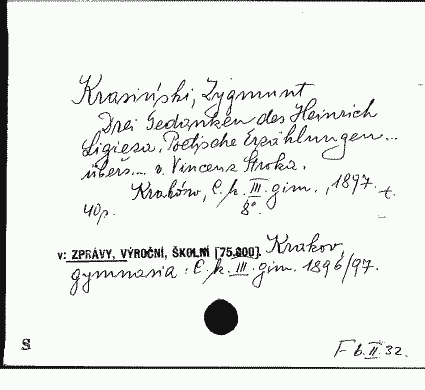 Krasiński, Zygmunt
Drei Gedanken des Heinrich
Ligieza. Poetische Erzählungen...
übers.... v. Vincenz Stroka.
Kraków, C. k. III. gim., 1897. t.
40 p. 8°.
v: ZPRÁVY, VÝROČNÍ, ŠKOLNÍ [75.800]. Krakov,
gymnasia: C. k. III. gim. 1896/97.
S F b. II. 32.